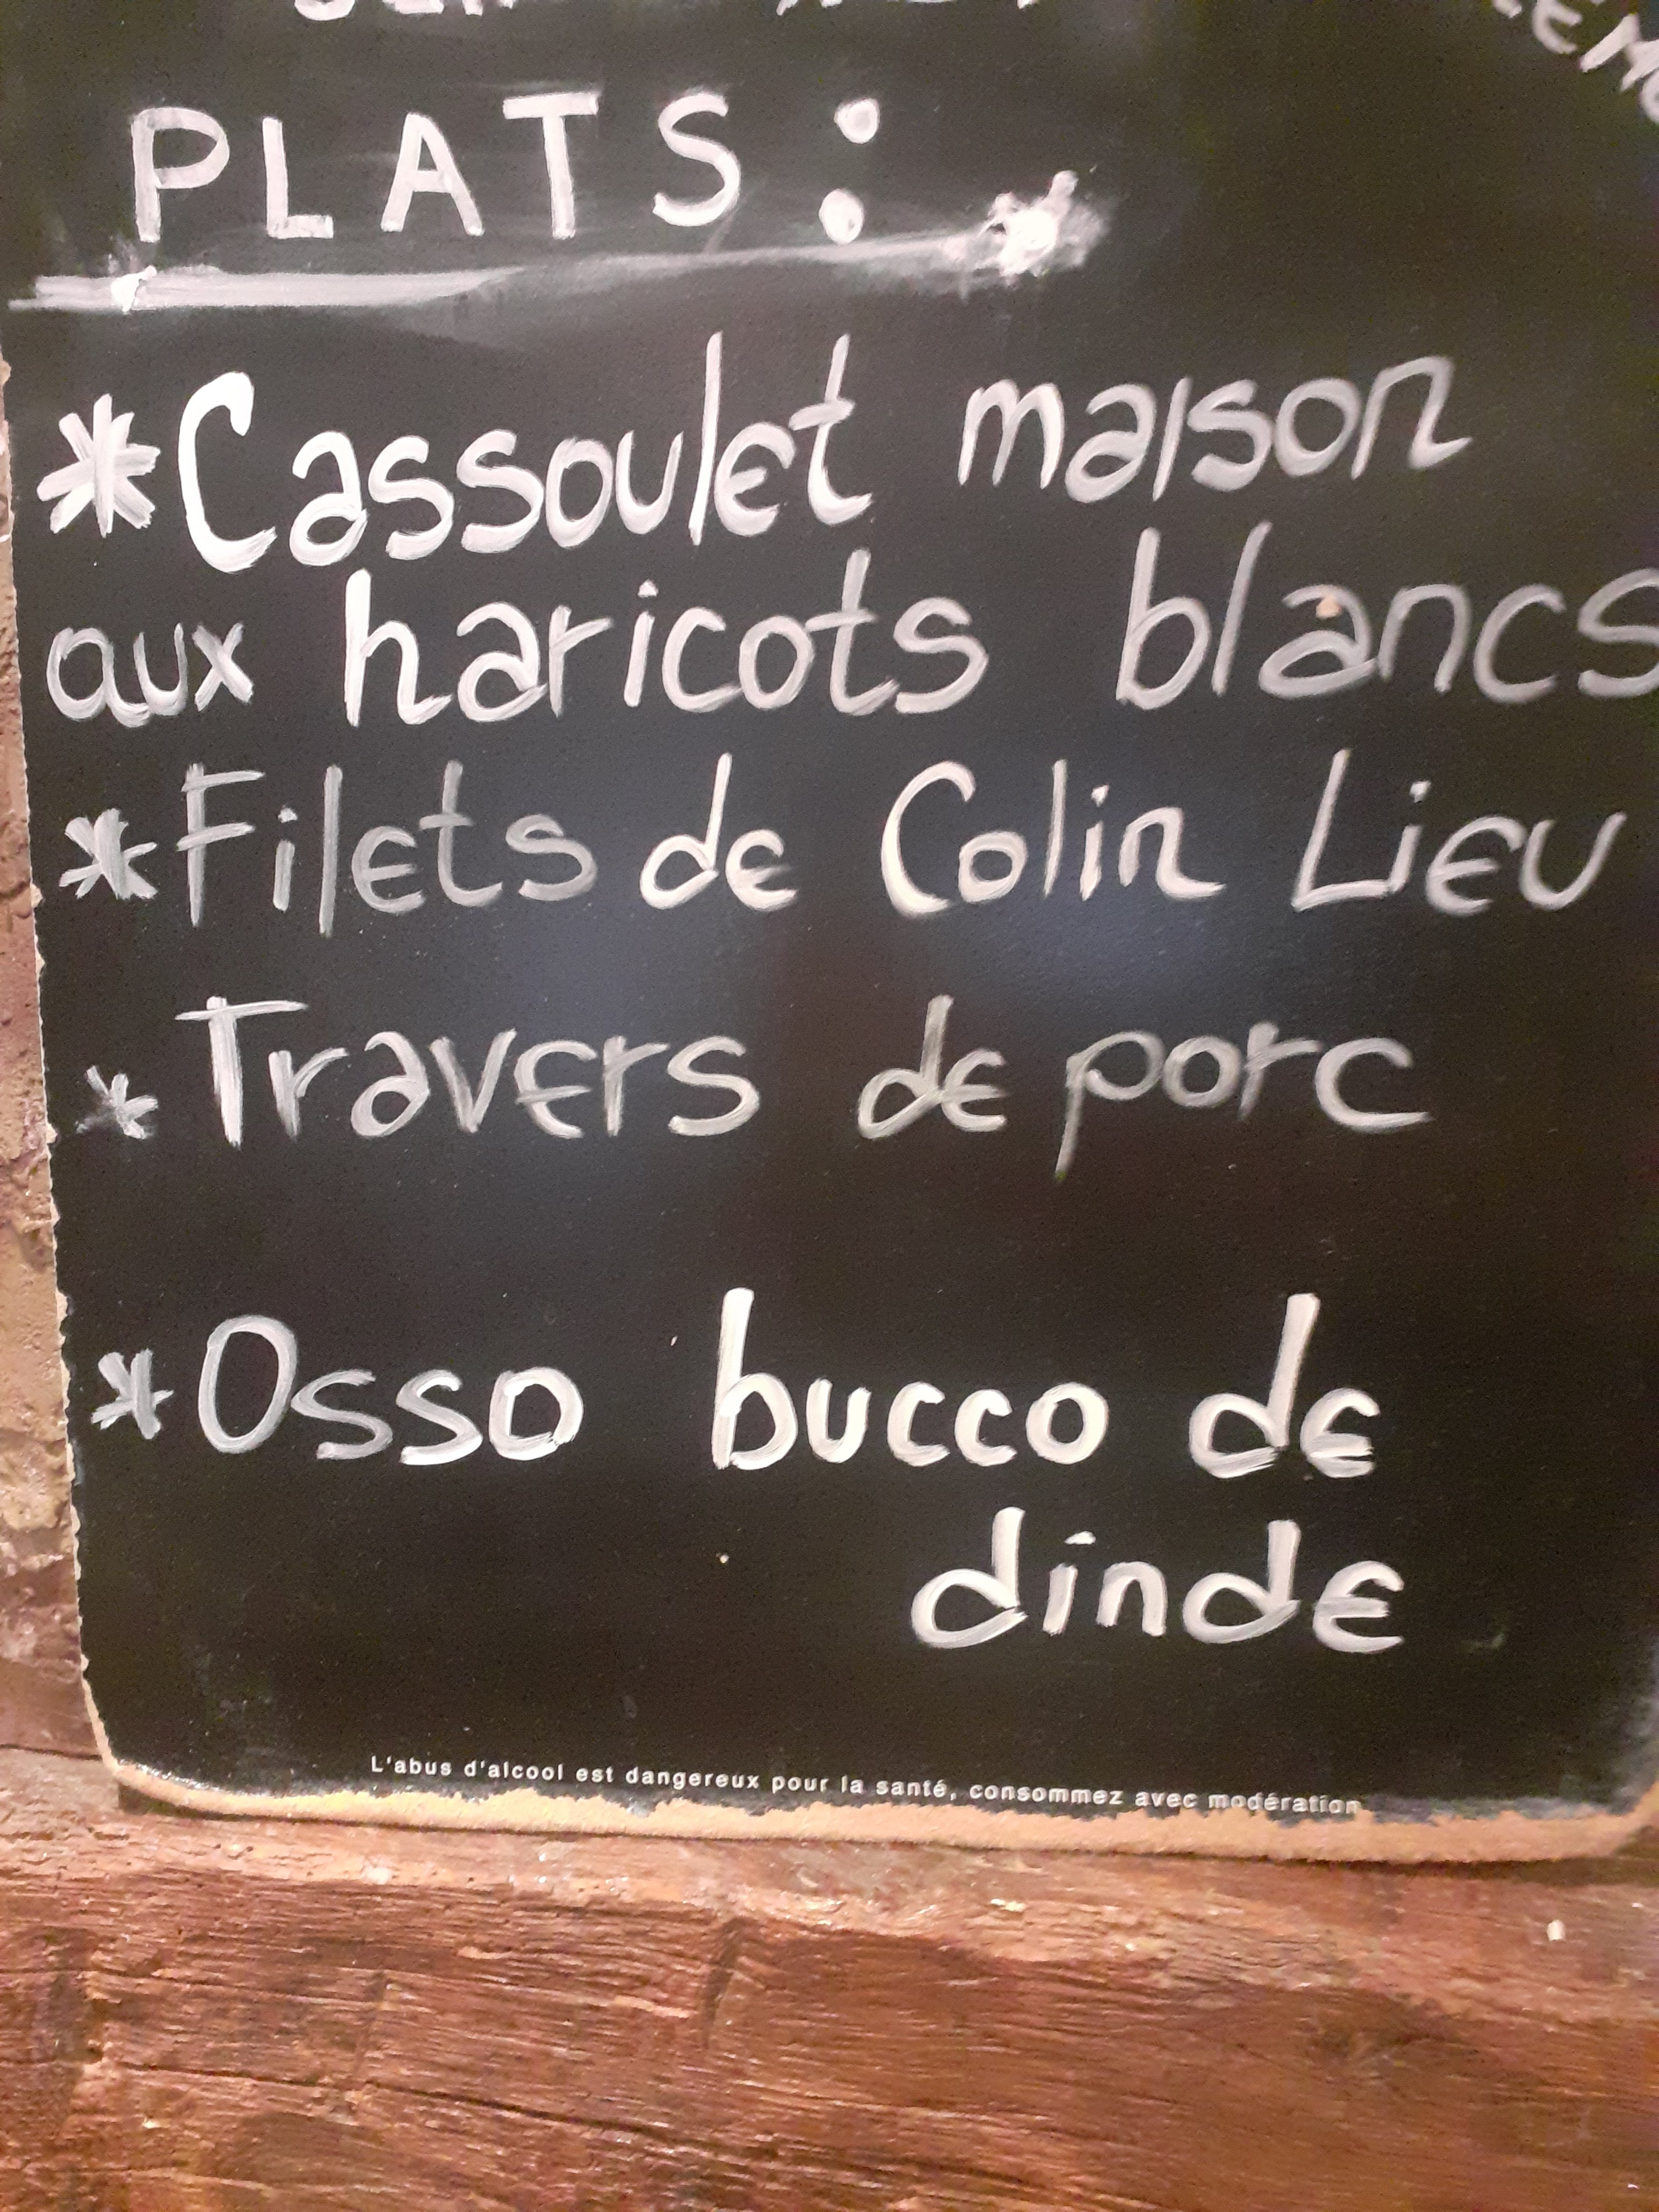 PLATS :
*Cassoulet maison
aux haricots blancs
*Filets de Colin Lieu
*Travers de porc
*Osso bucco de
dinde
L'abus d'alcool est dangereux pour la santé, consommez avec modération